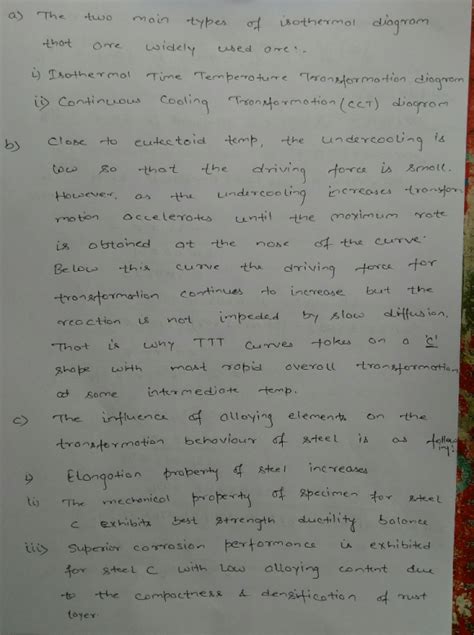 a) The two main types of isothermal diagram
that are widely used are:.
i) Isothermal Time Temperature Transformation diagram
ii) Continuous Cooling Transformation (CCT) diagram
b) Close to eutectoid temp, the undercooling is
low so that the driving force is small.
However, as the undercooling increases transfor
mation accelerates until the maximum rate
is obtained at the nose of the curve.
Below this curve the driving force for
transformation continues to increase but the
reaction is not impeded by slow diffusion.
That is why TTT curves takes on a 'C'
shape with most rapid overall transformation
at some intermediate temp.
c) The influence of alloying elements on the
transformation behaviour of steel is as follow
ing:
i) Elongation property of steel increases
ii) The mechanical property of specimen for steel
C exhibits best strength ductility balance
iii) Superior corrosion performance is exhibited
for steel C with low alloying content due
to the compactness & densification of rust
layer.